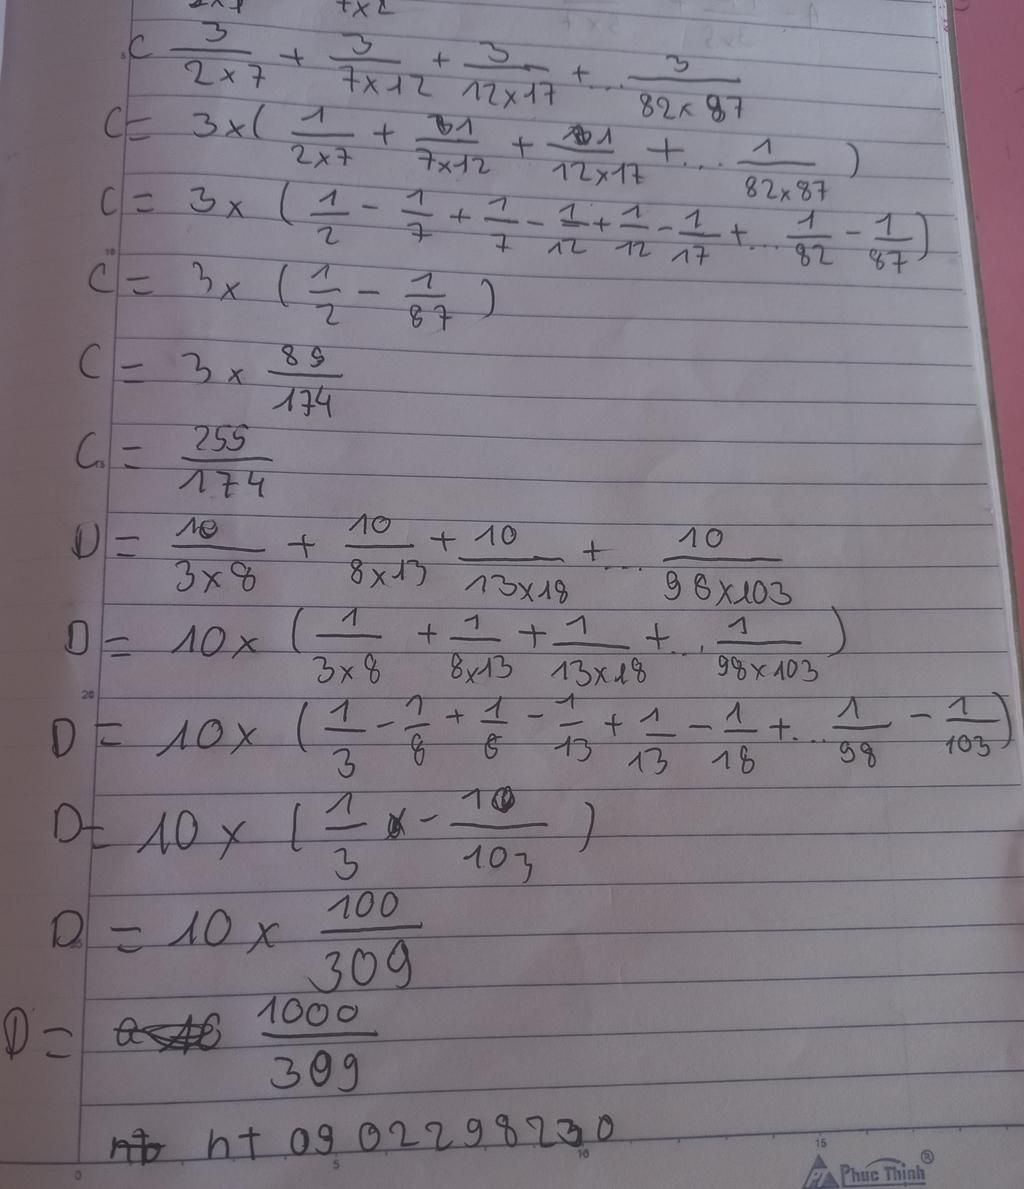 7x2
C 3/(2x7) + 3/(7x12) + 3/(12x17) + ... 3/(82x87)
C = 3x( 1/(2x7) + 1/(7x12) + 1/(12x17) + ... 1/(82x87) )
C = 3x ( 1/2 - 1/7 + 1/7 - 1/12 + 1/12 - 1/17 + ... 1/82 - 1/87 )
C = 3x ( 1/2 - 1/87 )
C = 3x 85/174
C = 255/174
D = 10/(3x8) + 10/(8x13) + 10/(13x18) + ... 10/(98x103)
D = 10x ( 1/(3x8) + 1/(8x13) + 1/(13x18) + ... 1/(98x103) )
20
D = 10x ( 1/3 - 1/8 + 1/8 - 1/13 + 1/13 - 1/18 + ... 1/98 - 1/103 )
D = 10x ( 1/3 - 10/103 )
D = 10x 100/309
D = 1000/309
nt 0902298230
0 5 10 15
Phuc Thinh®